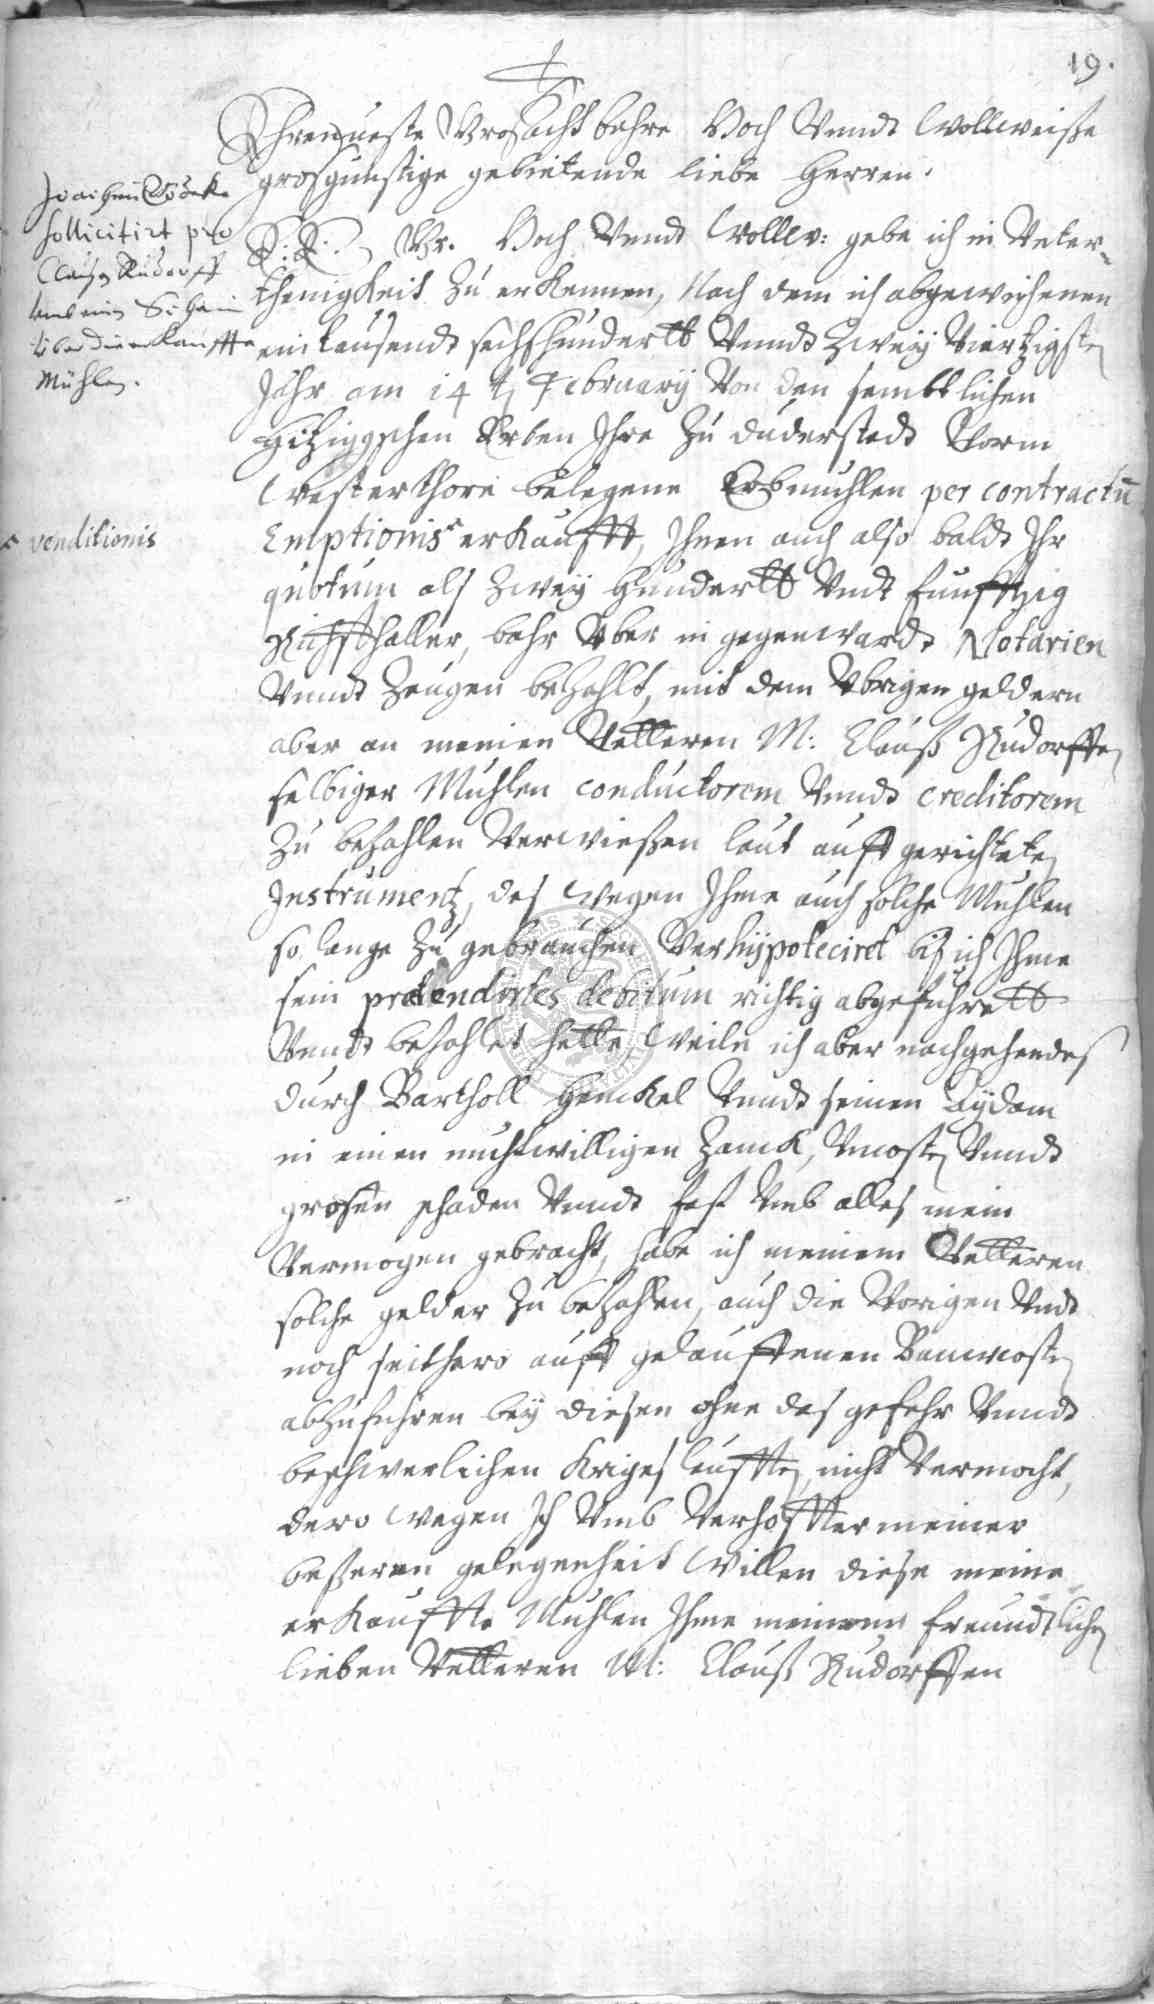 19.
Ehrenueste Grosacht bahre Hoch Vnndt Wollweiße
grosgunstige gebietende liebe Herren.
Joachim
sollicitirt pro
Clauß Rudorff
umb einen Schein
über die erkauffte
Mühlen.
E: E: Gr. Hoch Vnndt Wollw: gebe ich in Vnter¬
thenigkeit Zu erkennen, Nach dem ich abgewichenen
eintausendt sechßhundertt Vnndt Zweÿ Viertzigsten
Jahr am 14 t. Februarÿ Von den sembtlichen
Erben Ihre Zu duderstadt Vorm
Westerthore belegene Erbmuhlen per contractū
Emptionis ^ erkaufft, Ihnen auch also baldt Ihr
^ venditionis
quotum als Zweÿ hundertt Vndt funfftzig
Richsthaller, bahr Vber in gegenwardt Notarien
Vnndt Zeugen bezahlt, mit dem Vbrigen geldern
aber an meinen Vetteren M: Clauß Rudorffen
selbiger Muhlen conductorem Vnndt creditorem
Zu bezahlen Verwießen laut auffgerichteten
Instrumentz, des wegen Ihme auch solche Muhlen
so lange Zu gebrauchen Verhÿpoteciret biß ich Ihme
sein prætendirtes debitum richtig abgefuhrett
Vnndt bezahlet hette, Weiln ich aber nachgehendes
durch Bartholl Henckel Vnndt seinen Eÿdam
in einen muhtwilligen Zanck, Vncosten Vnndt
grosen schaden Vnndt fast Vmb alles mein
Vermogen gebracht, habe ich meinem Vetteren
solche gelder Zu bezahlen, auch die Vorigen Vndt
noch seithero auff gelauffenen Bauwcosten
abzufuhren beÿ diesen ohne das gefehr Vnndt
beschwerlichen Kriges leufften, nicht Vermocht,
dero wegen Ich Vmb Verhoffter meiner
beßeren gelegenheit Willen diese meine
erkauffte Muhlen Ihme meinem freundtlichen
lieben Vetteren M: Clauß Rudorffen